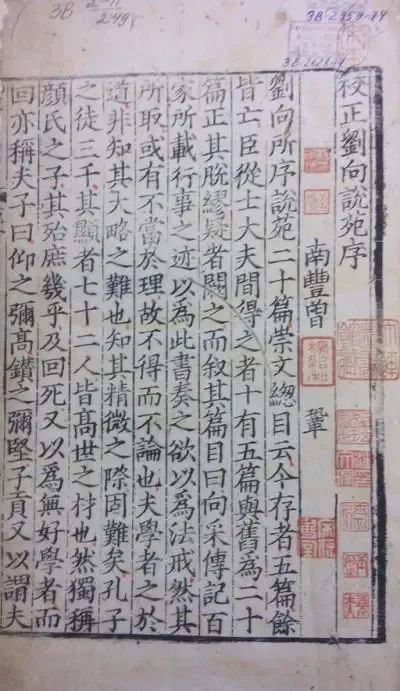 3B
249
校正劉向說苑序
南豐曾 鞏
劉向所序說苑二十篇崇文總目云今存者五篇餘
皆亡臣從士大夫間得之者十有五篇與舊為二十
篇正其脫繆疑者闕之而叙其篇目曰向采傳記百
家所載行事之迹以為此書奏之欲以為法戒然其
所取或有不當於理故不得而不論也夫學者之於
道非知其大略之難也知其精微之際固難矣孔子
之徒三千其顯者七十二人皆高世之材也然獨稱
顏氏之子其殆庶幾乎及回死又以為無好學者而
回亦稱夫子曰仰之彌高鑽之彌堅子貢又以謂夫